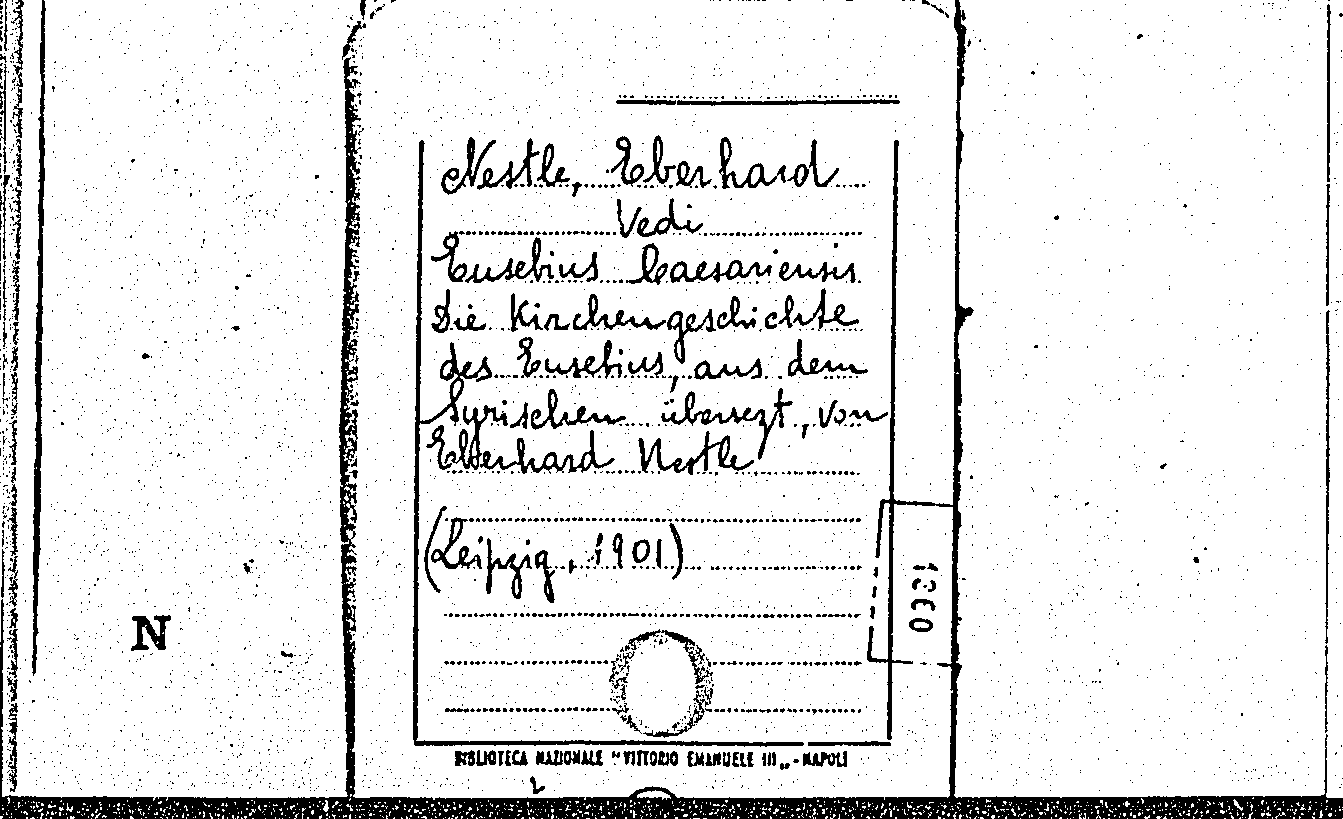 Nestle, Eberhard
Vedi
Eusebius Caesariensis
Die Kirchengeschichte
des Eusebius, aus dem
Syrischen übersezt, von
Eberhard Nestle
(Leipzig, 1901)
1960
N
BIBLIOTECA NAZIONALE "VITTORIO EMANUELE III„ - NAPOLI